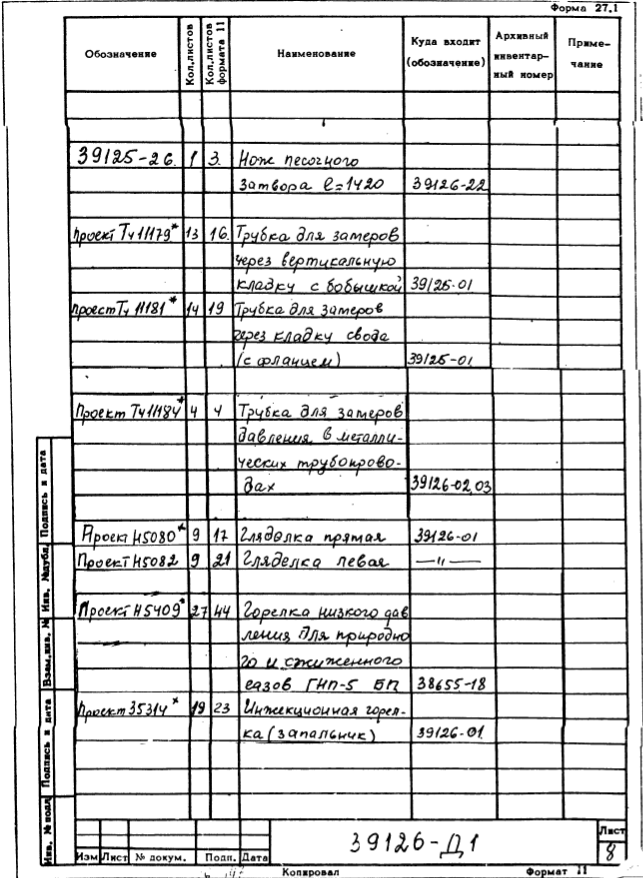 Форма 27.1
Обозначение Кол.листов Кол.листов формата 11 Наименование Куда входит (обозначение) Архивный инвентарный номер Примечание
39125-26. 1 3. Нож песочного
затвора ℓ=1420 39126-22
проект Тч 11179* 13 16. Трубка для замеров
через вертикальную
кладку с бобышкой 39125-01
проект Тч 11181* 14 19 Трубка для замеров
через кладку свода
(с фланцем) 39125-01
Проект Тч 11184* 4 4 Трубка для замеров
давления в металли-
ческих трубопрово-
дах 39126-02,03
Проект Н5080* 9 17 Гляделка прямая 39126-01
Проект Н5082 9 21 Гляделка левая —"—
Проект Н5409* 27 44 Горелка низкого дав
ления для природно
го и сжиженного
газов ГНП-5 БП 38655-18
Проект 35314* 19 23 Инжекционная горел-
ка (запальник) 39126-01
Инв. № подл Подпись и дата Взам.инв. № Инв. №дубл. Подпись и дата
39126-Д1
Лист
8
Изм Лист № докум. Подп. Дата
Копировал Формат 11